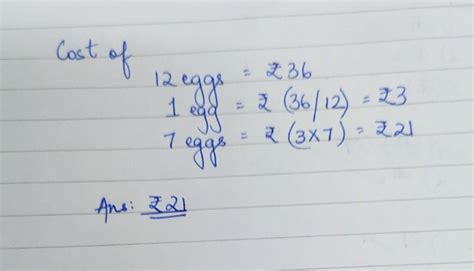 Cost of
12 eggs = ₹36
1 egg = ₹ (36/12) = ₹3
7 eggs = ₹ (3×7) = ₹21
Ans: ₹21